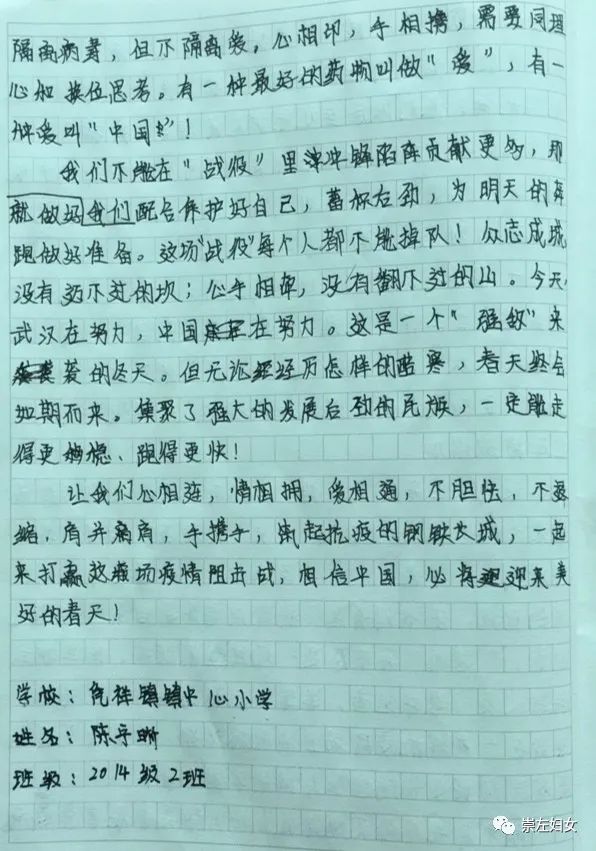 隔离病毒，但不隔离爱。心相印，手相携，需要同理
心和换位思考。有一种最好的药物叫做“爱”，有一
种爱叫“中国”！
我们不能在“战役”里冲锋陷阵贡献更多，那
就做好我们配合保护好自己，蓄积后劲，为明天的奔
跑做好准备。这场“战役”每个人都不能掉队！众志成城
没有迈不过的坎；心手相牵，没有翻不过的山。今天，
武汉在努力，中国在努力。这是一个“强敌”来
袭的冬天。但无论经历怎样的酷寒，春天终会
如期而来。集聚了强大的发展后劲的民族，一定能走
得更稳、跑得更快！
让我们心相连，情相拥，爱相通，不胆怯，不退
缩，肩并肩，手携手，筑起抗疫的钢铁长城，一起
来打赢这场疫情阻击战，相信中国，必将迎来美
好的春天！
学校：凭祥镇中心小学
姓名：陈
班级：2014级2班
崇左妇女